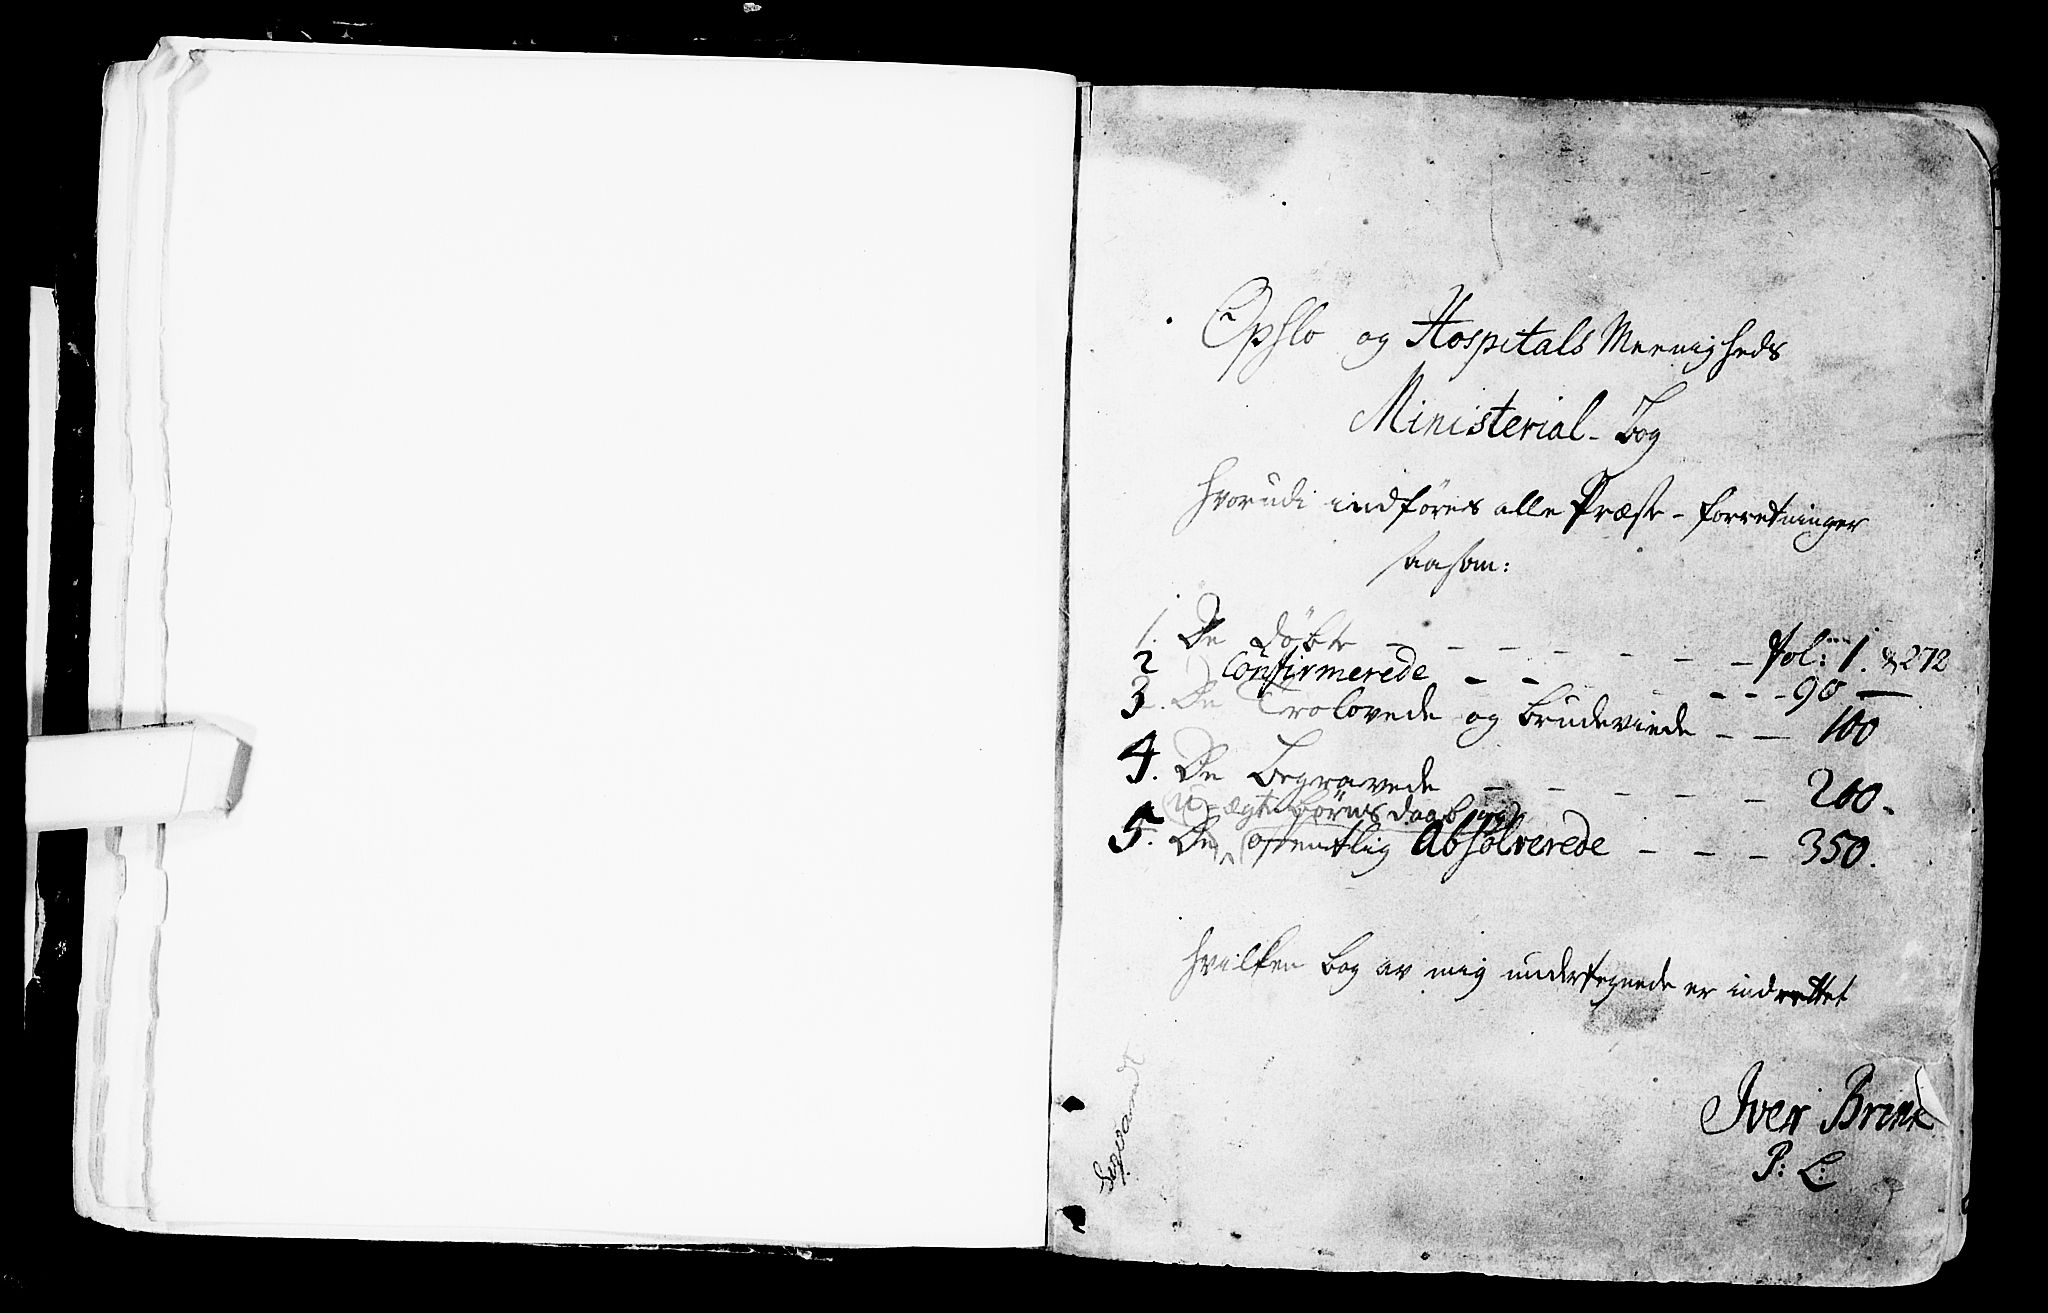 Opslo og Hospitals Menigheds
Ministerial-Bog
hvorudi indføres alle Præste-forretninger
saasom:
1. De Døbte - - - - - - - Fol: 1. & 272
2 Confirmerede - - - - - 90 —
3. De Trolovede og brudeviede - - 100
4. De Begravede - - - - - 200.
U-ægte børns daab og
5. De ofentlig Absolverede - - - 350.
hvilken bog av mig undertegnede er indrettet
Iver Brink
P: L: